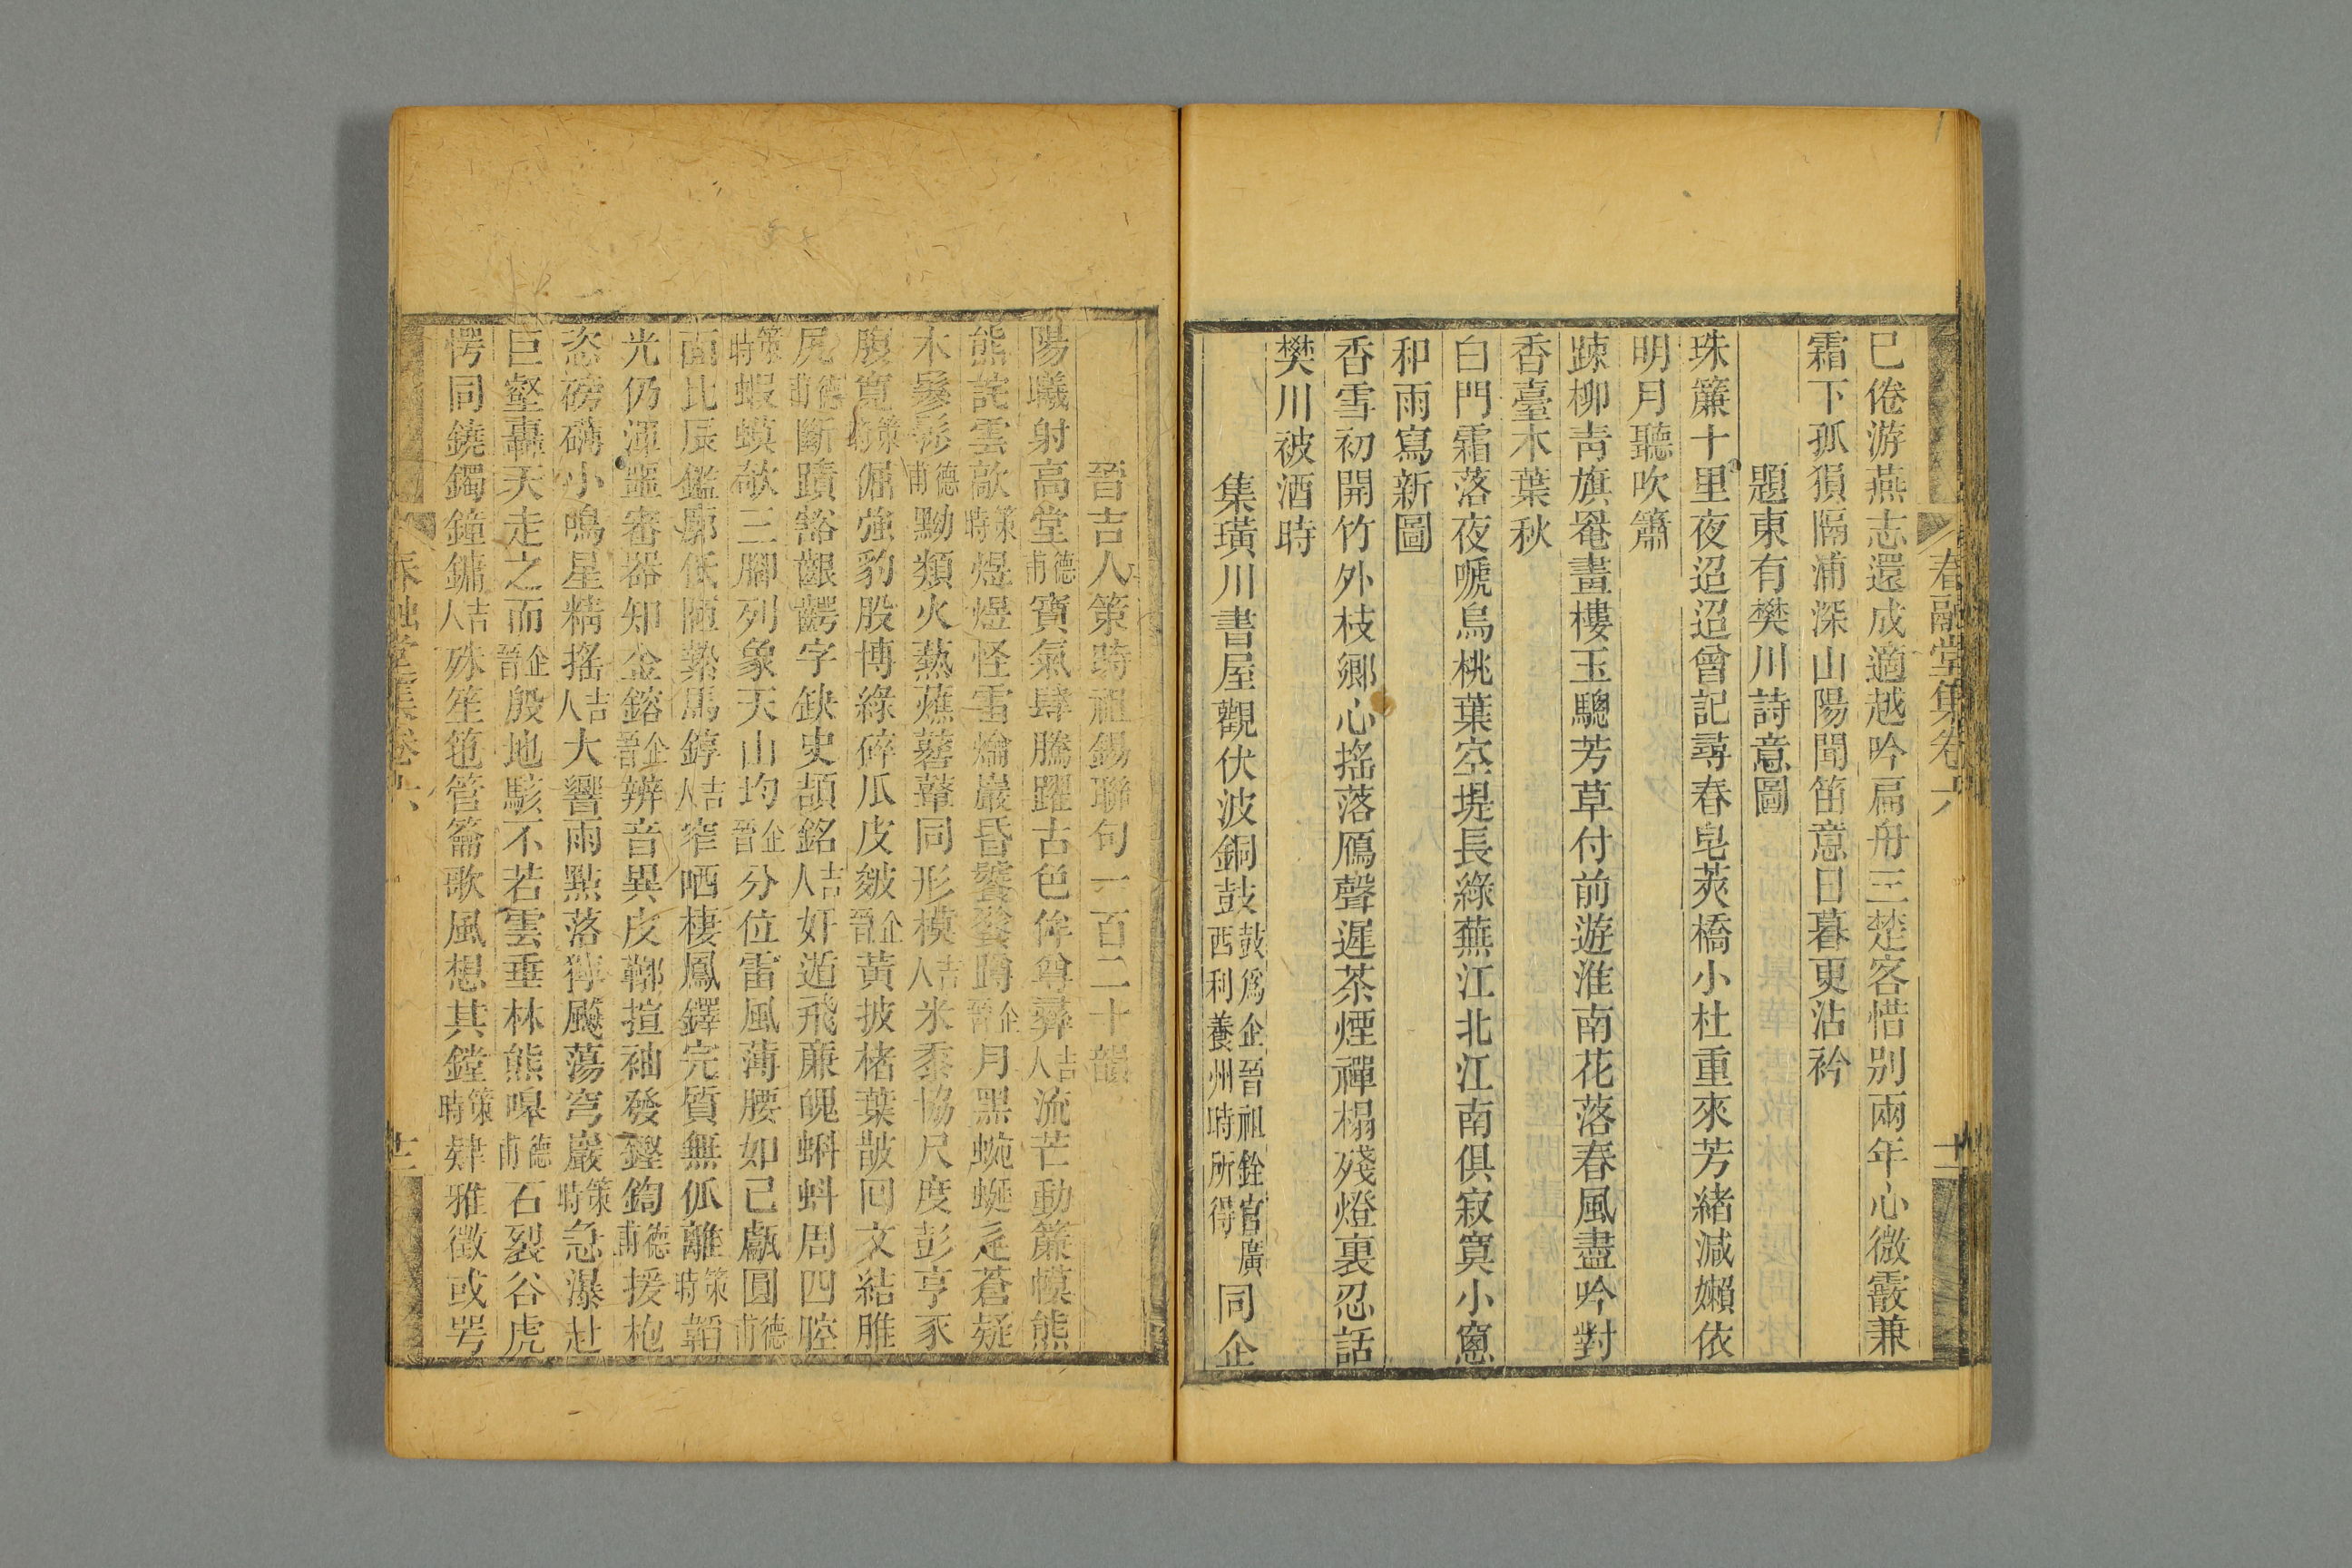 已倦游燕志還成適越吟扁舟三楚客惜别兩年心微霰兼
霜下孤猨隔浦深山陽聞笛意日暮更沾衿
題東有樊川詩意圖
珠簾十里夜迢迢曾記尋春皂莢橋小杜重來芳緒減嬾依
明月聽吹簫
疎柳靑旗罨畫樓玉驄芳草付前遊淮南花落春風盡吟對
香臺木葉秋
白門霜落夜嗁烏桃葉空堤長綠蕪江北江南俱寂寞小窻
和雨寫新圖
香雪初開竹外枝鄉心搖落鴈聲遲茶煙禪榻殘燈裏忍話
樊川被酒時
集璜川書屋觀伏波銅鼓鼓爲企晉祖銓官廣西利養州時所得同企
春融堂集卷六
十二
晉吉人策時祖錫聯句一百二十韻
陽曦射高堂德甫寶氣肆騰躍古色侔尊彝吉人流芒動簾幙熊
熊詫雲歊策時煜煜怪雷爚巖昏饕餮蹲企晉月黑蜿蜒辵蒼疑
木鬖髿德甫黝類火爇蕉蓦鼛同形模吉人米黍協尺度彭亨豕
腹寛策時倔強豹股博綠碎瓜皮皴企晉黃披楮葉皵回文結脽
尻德甫斷蹟豁齦齶字缺史頡銘吉人奸遁飛廉魄蝌蚪周四腔
策時蝦蟆欹三腳列象天山均企晉分位雷風薄腰如己甗圓德甫
面比辰鑑廓低陋縶馬錞吉人窄哂棲鳳鐸完質無㼌離策時韜
光仍渾噩審器知金鎔企晉辨音異皮鞹揎袖發鏗鍧德甫援枹
恣磅礴小鳴星精搖吉人大響雨點落獰颷蕩穹巖策時急瀑赴
巨壑轟天走之而企晉殷地駭不若雲垂林熊嘷德甫石裂谷虎
愕同鐃鐲鐘鏞吉人殊笙竾管籥歌風想其鏜策時肄雅徵或咢
春融堂集卷六